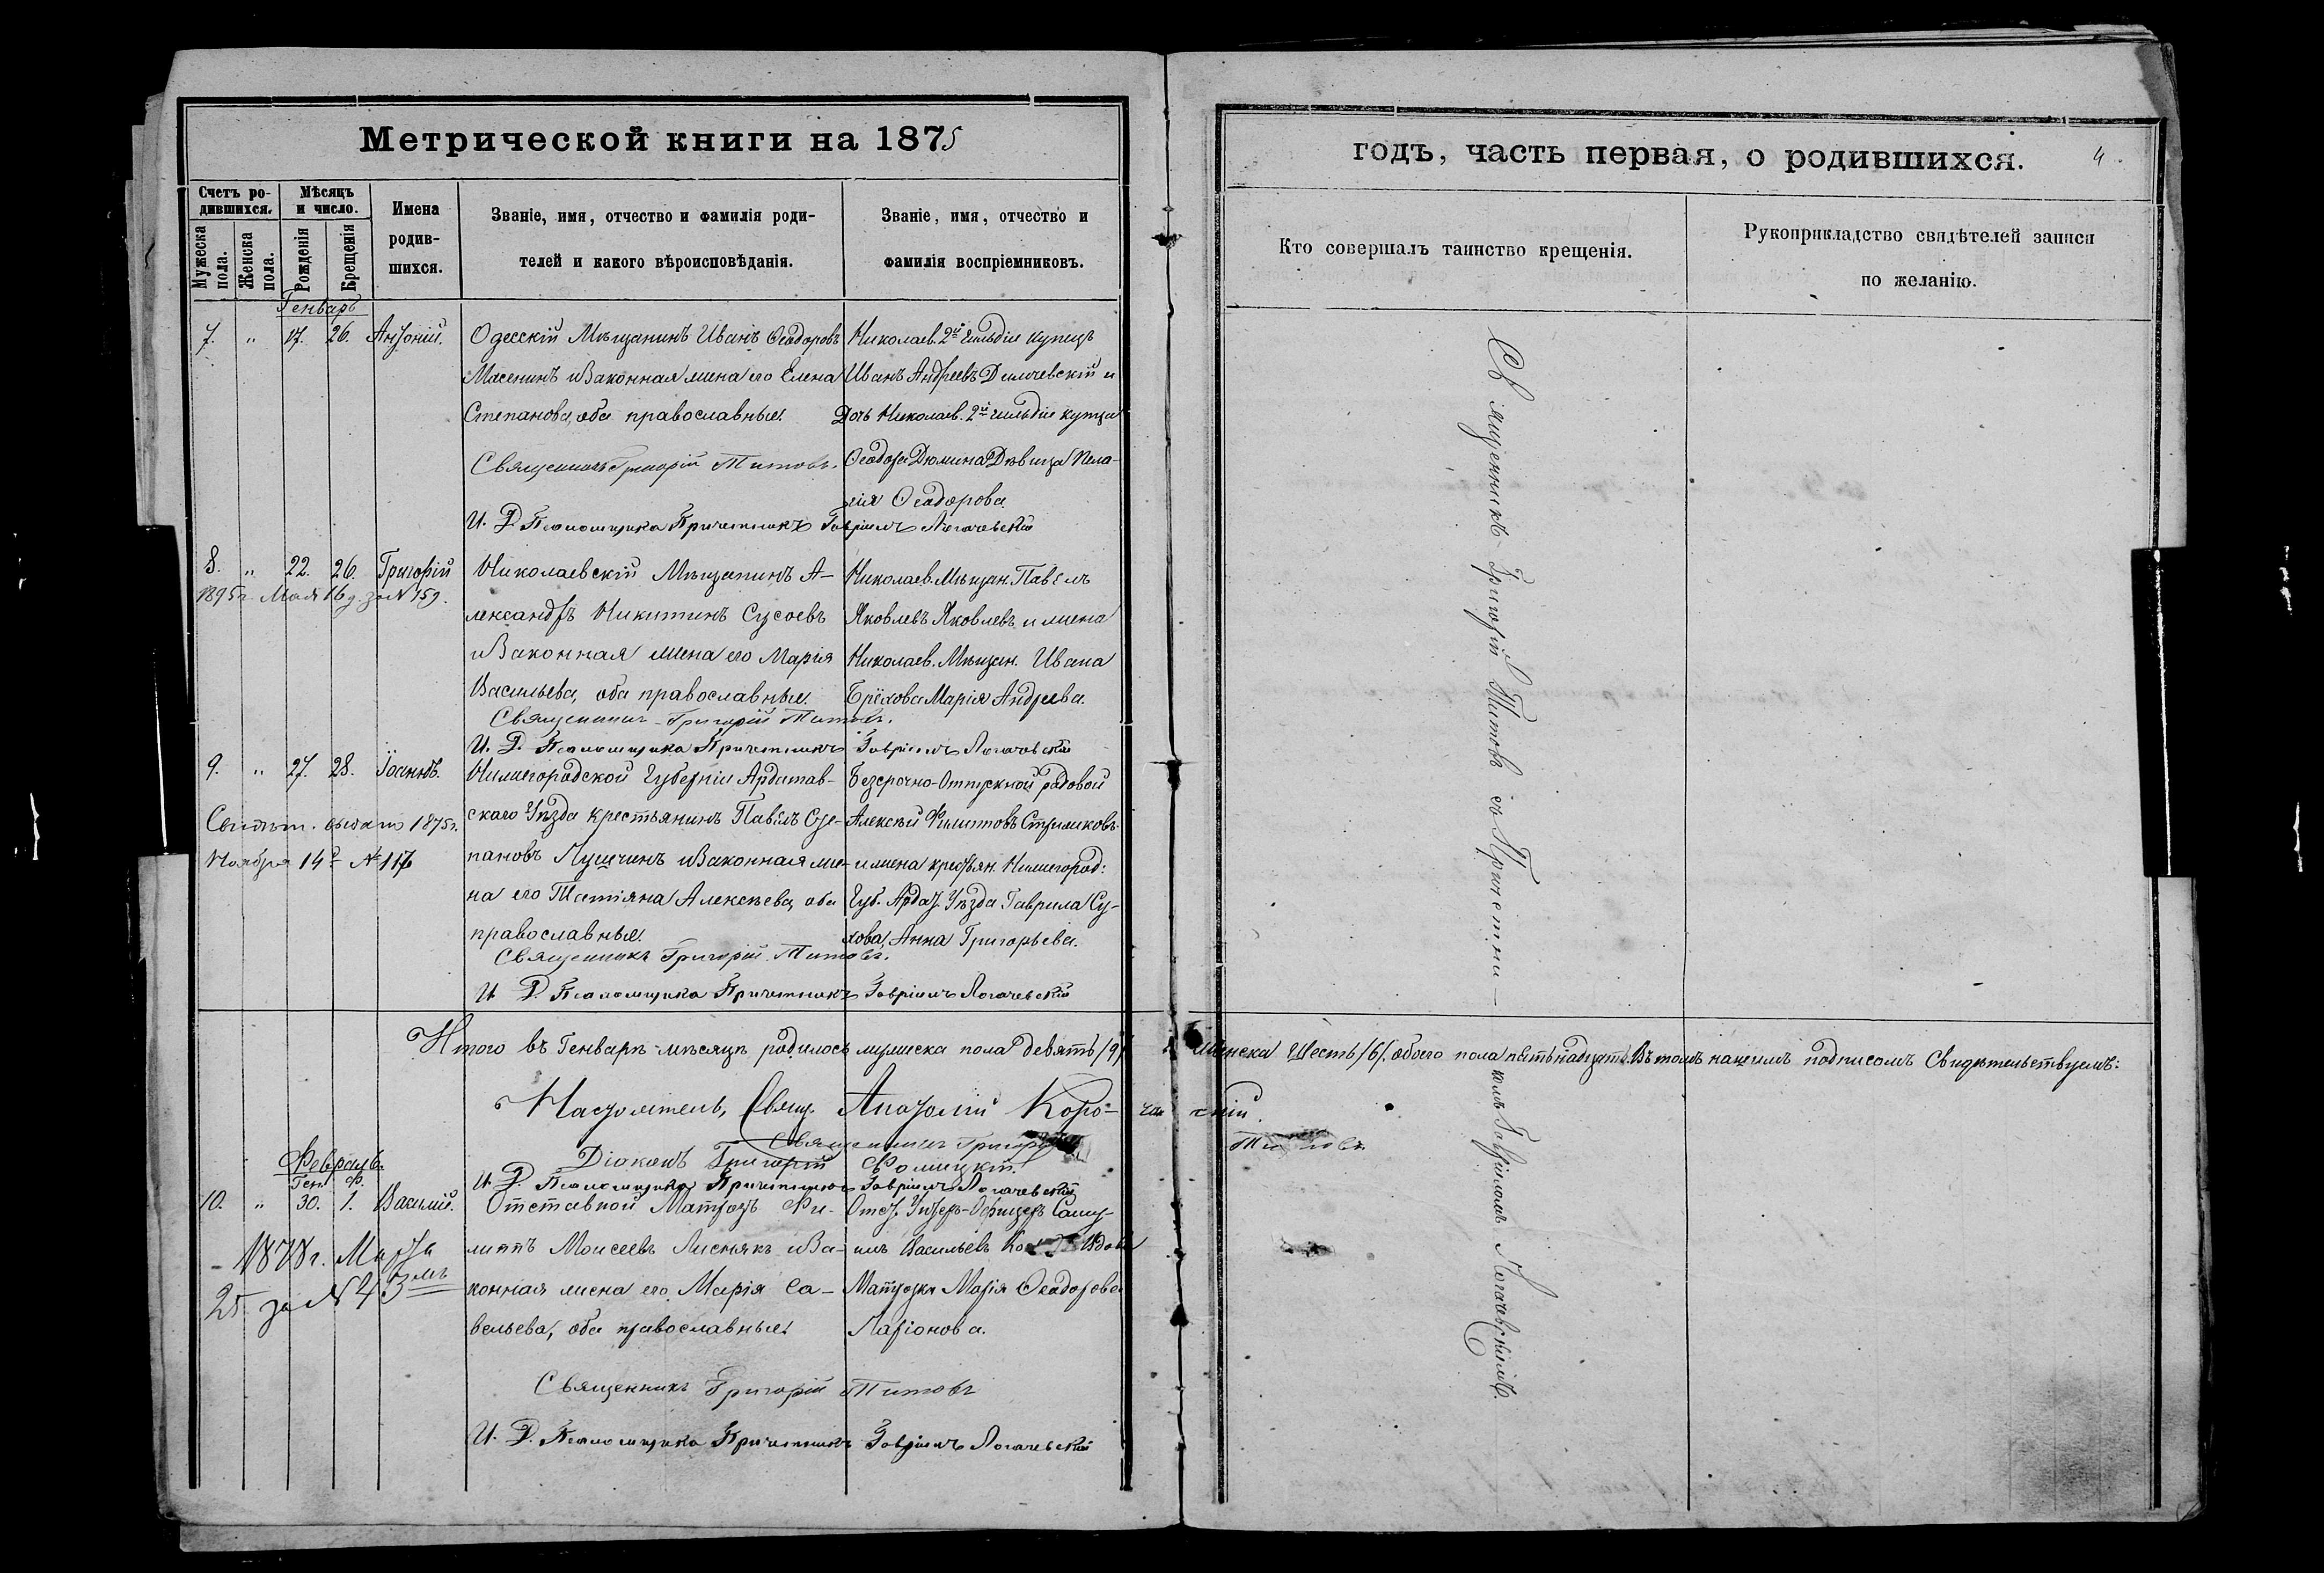 Метрической книги на 1875
Счетъ ро-
дившихся.
Мѣсяцъ
и число.
Имена
родив-
шихся.
Званіе, имя, отчество и фамилія роди-
телей и какого вѣроисповѣданія.
Званіе, имя, отчество и
фамилія воспріемниковъ.
Мужеска
пола.
Женска
пола.
Рожденія
Крещенія
Генварь
7. " 17. 26. Антоній.
Одесскій Мѣщанинъ Иванъ Ѳеодоровъ
Масенинъ и законная жена его Елена
Степанова, оба православные.
Священникъ Григорій Титовъ.
Николаев. 2й Гильдіи купецъ
Иванъ Андреевъ Диличевскій и
Дочь Николаев. 2й гильдіи купца
Ѳеодора Дюмина Дѣвица Пела-
гія Ѳеодорова.
И. Д. Псаломщика Причетникъ Гавріилъ Логачевскій
8. " 22. 26. Григорій
1895г. Мая 16 д. за № 159.
Николаевскій Мѣщанинъ А-
лександръ Никитинъ Сусоевъ
и законная жена его Марія
Васильева, оба православные.
Николаев. Мѣщан. Павелъ
Яковлевъ Яковлевъ и жена
Николаев. Мѣщан. Ивана
Брёхова Марія Андреева.
Священникъ Григорій Титовъ.
И. Д. Псаломщика Причетникъ Гавріилъ Логачевскій
9. " 27. 28. Іоаннъ.
Свидѣт. выдано 1875г.
Ноября 14г № 117
Нижегородской Губерніи Ардатав-
скаго Уѣзда крестьянинъ Павелъ Сте-
пановъ Пушчинъ и законная же-
на его Татіяна Алексѣева, оба
православные.
Безсрочно-Отпускной рядовой
Алексѣй Филитовъ Стрижковъ
и жена крестьян. Нижегород:
Губ. Ардат. Уѣзда Гаврила Су-
хова, Анна Григорьева.
Священникъ Григорій Титовъ.
И. Д. Псаломщика Причетникъ Гавріилъ Логачевскій
Итого въ Генварѣ мѣсяцѣ родилось мужеска пола девять /9/
Настоятель, Свящ. Анатолій Коро-
Священникъ Григорій
Діаконъ Григорій
И. Д. Псаломщика Причетникъ Гавріилъ Логачевскій
Февраль.
Ген. Ф.
10. " 30. 1. Василій.
1878г. Марта
25 за № 43мъ
Отставной Матрозъ Фи-
липпъ Моисеевъ Лиснякъ и за-
конная жена его Марія Са-
вельева, оба православные.
Отст. Унтеръ-Офицеръ Саму-
илъ Васильевъ
Матрозка Марія Ѳеодорова
Ларіонова.
Священникъ Григорій Титовъ
И. Д. Псаломщика Причетникъ Гавріилъ Логачевскій
годъ, часть первая, о родившихся.
4.
Кто совершалъ таинство крещенія.
Рукоприкладство свидѣтелей записи
по желанію.
Священникъ Григорій Титовъ съ Причетни-
комъ Гавріиломъ Логачевскимъ.
женска Шесть /6/. обоего пола пятьнадцать. Въ томъ нашимъ подписомъ Свидѣтельствуемъ:
Титовъ